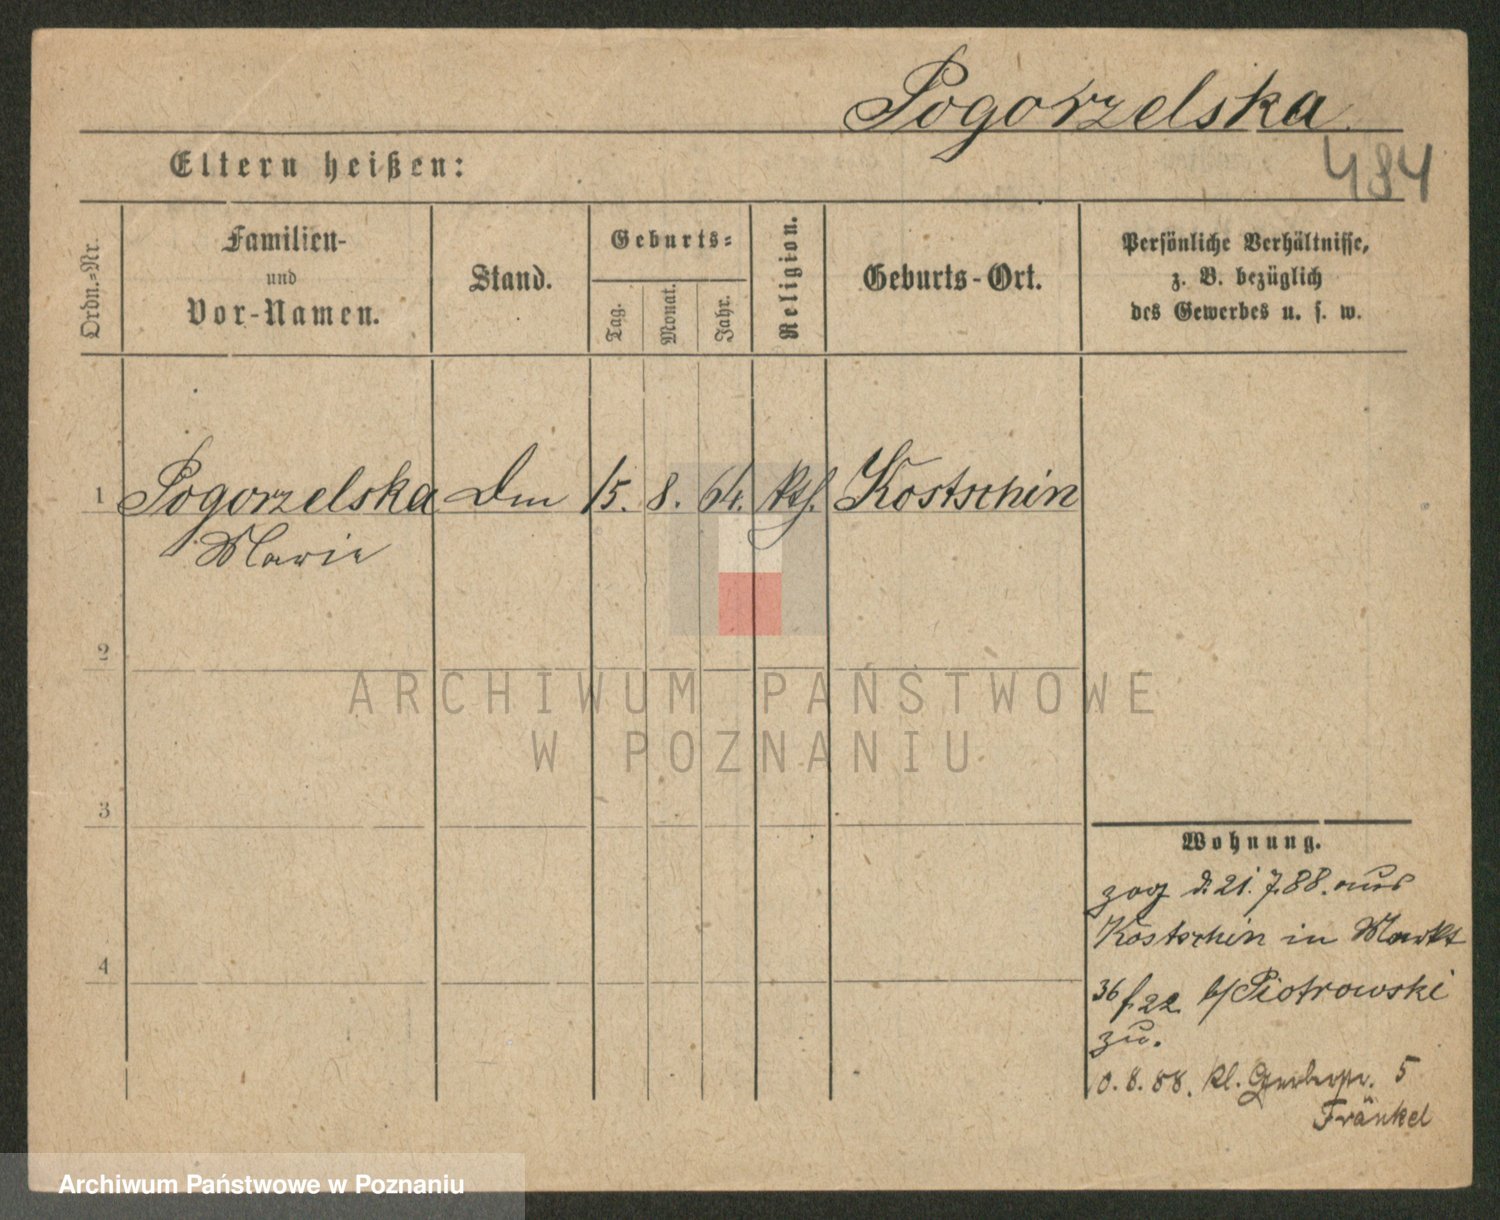 Pogorzelska
484
Eltern heißen:
Ordn.-Nr.
Familien-
und
Vor-Namen.
Stand.
Geburts-
Tag.
Monat.
Jahr.
Religion.
Geburts-Ort.
Persönliche Verhältnisse,
z. B. bezüglich
des Gewerbes u. s. w.
1 Pogorzelska 15. 8. 64. kth. Kostschin
Marie
2
3
4
ARCHIWUM PAŃSTWOWE
W POZNANIU
Wohnung.
zog d. 21. 7. 88. aus
Kostschin in Markt
36 f. 22. b/ Piotrowski
zu.
8. 88. kl. Gerberstr. 5
Fränkel
Archiwum Państwowe w Poznaniu